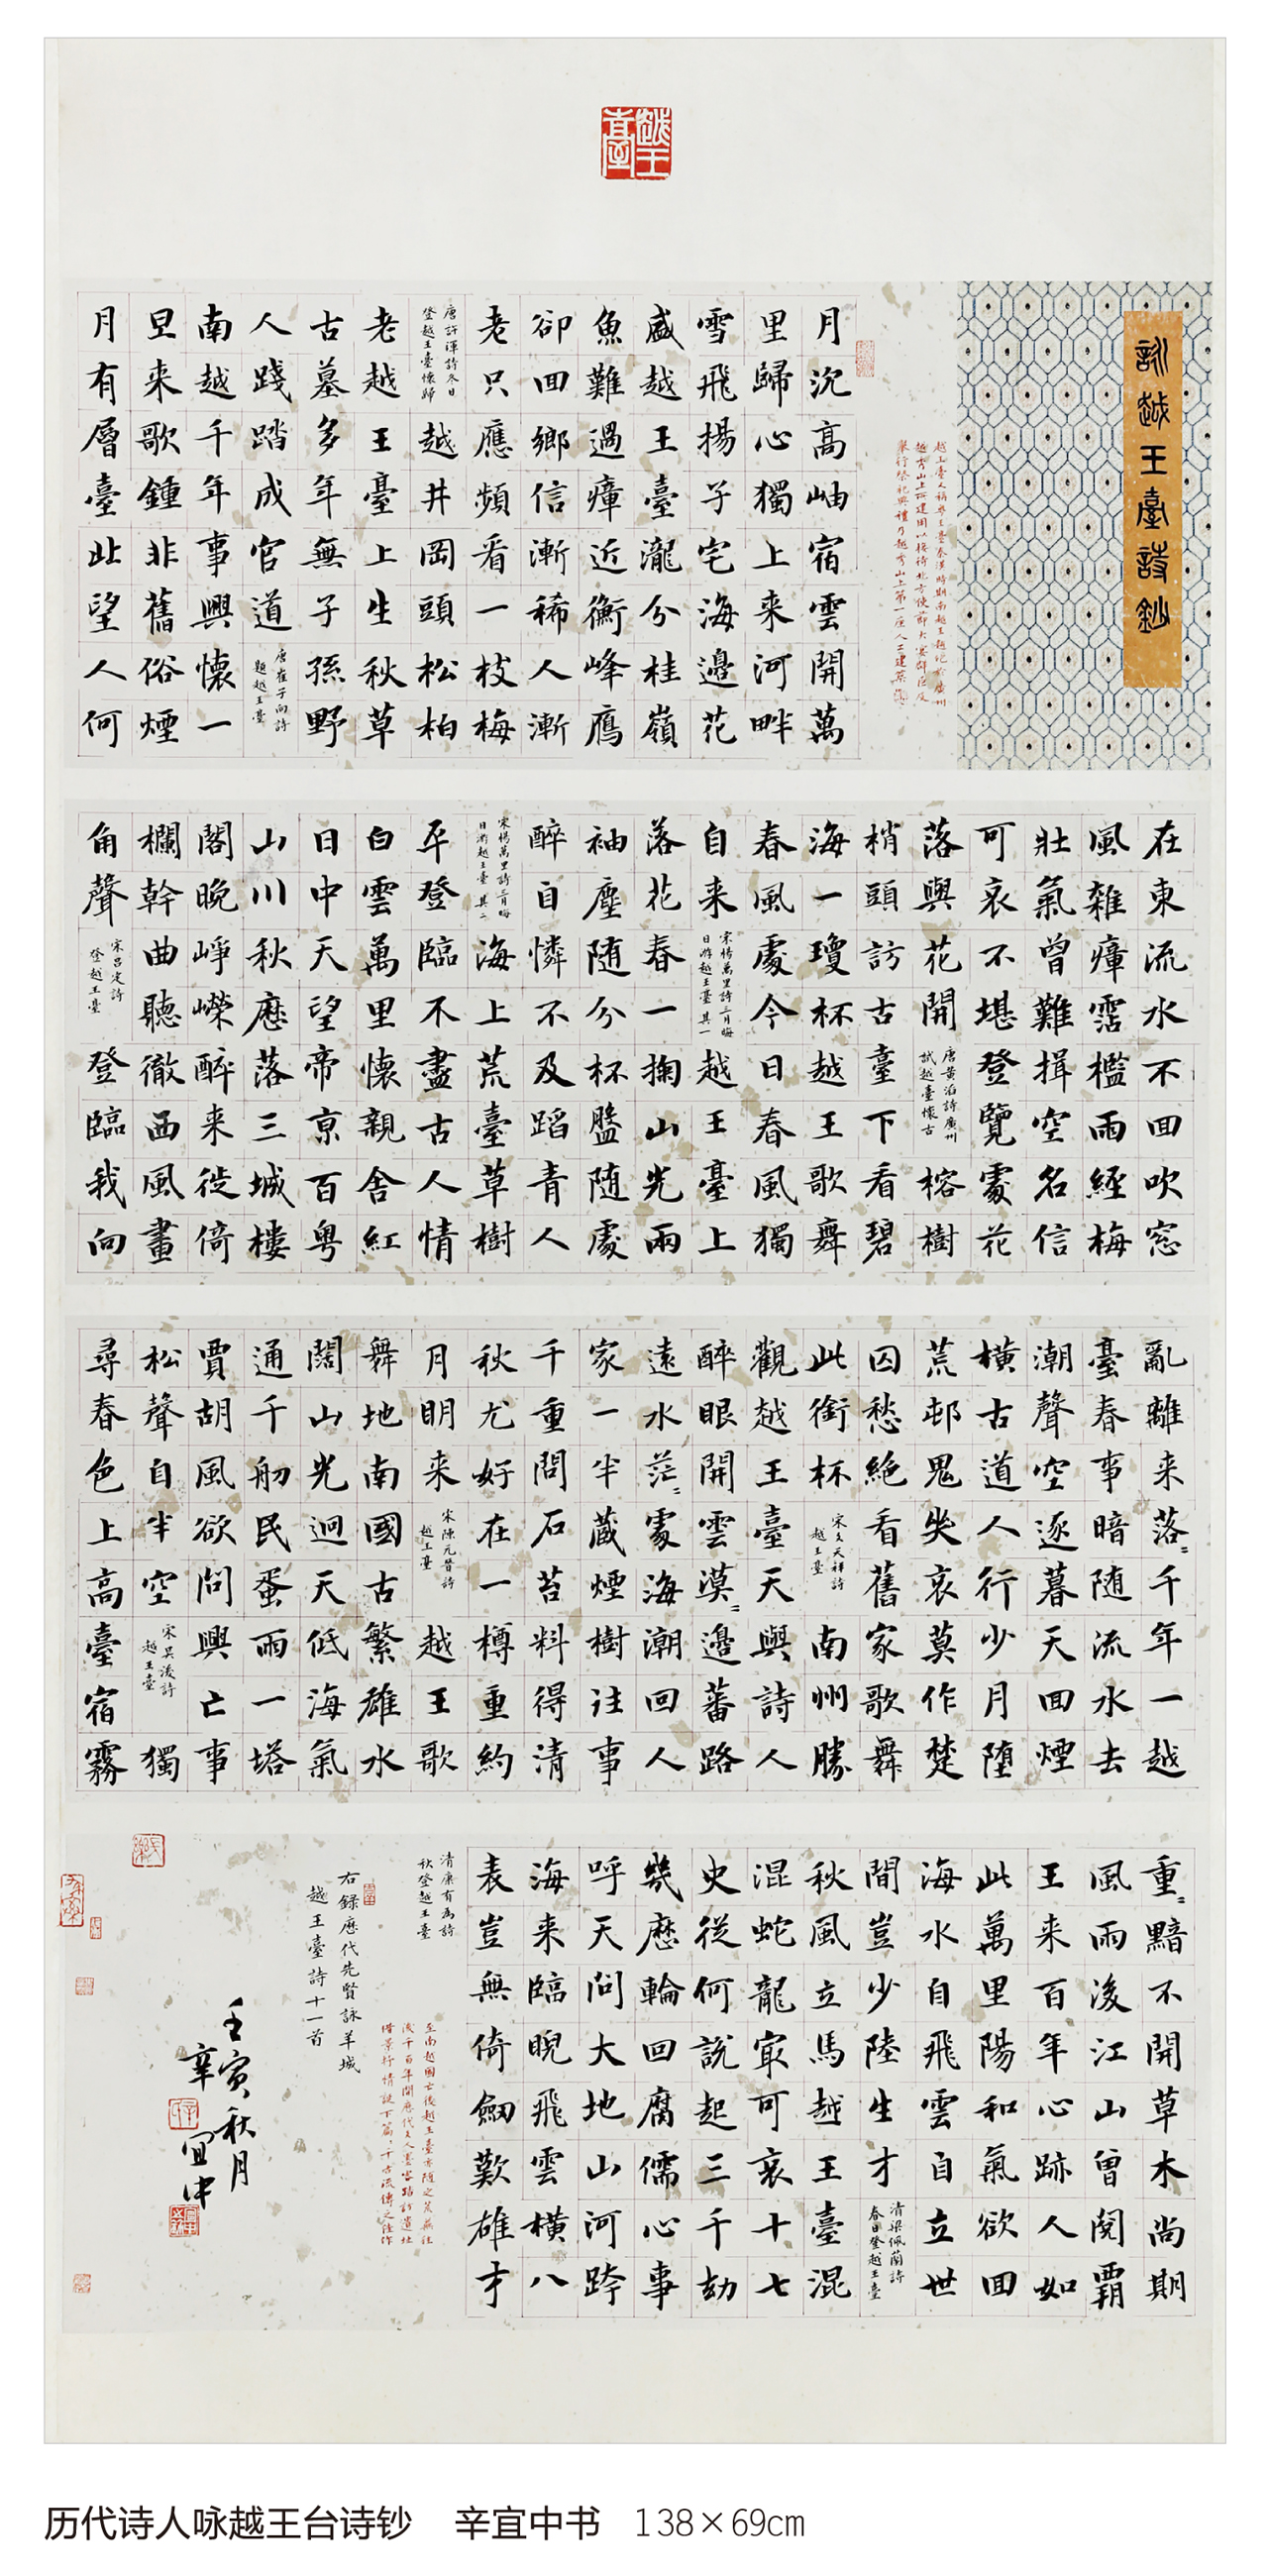 越王臺
詠越王臺詩鈔
越王臺又稱粤王臺秦漢時期南越王趙佗於廣州
越秀山上所建用以接待北方使節大宴群臣及
舉行祭祀典禮乃越秀山上第一座人工建築
月沉高岫宿雲開萬
里歸心獨上来河畔
雪飛揚子宅海邊花
盛越王臺瀧分桂嶺
魚難過瘴近衡峰鴈
卻回鄉信漸稀人漸
老只應頻看一枝梅
唐許渾詩冬日
登越王臺懷歸
越井岡頭松柏
老越王臺上生秋草
古墓多年無子孫野
人踐踏成官道
唐崔子向詩
題越王臺
南越千年事興懷一
旦来歌鍾非舊俗煙
月有層臺北望人何
在東流水不回吹窓
風雜瘴霑檻雨經梅
壯氣曾難揖空名信
可哀不堪登覽處花
落與花開
唐黃滔詩廣州
試越臺懷古
榕樹
梢頭訪古臺下看碧
海一瓊杯越王歌舞
春風處今日春風獨
自来
宋楊萬里詩三月晦
日游越王臺 其一
越王臺上
落花春一掬山光兩
袖塵随分杯盤随處
醉自憐不及蹈青人
宋楊萬里詩三月晦
日游越王臺 其二
海上荒臺草樹
平登臨不盡古人情
白雲萬里懷親舍紅
日中天望帝京百粤
山川秋歷落三城樓
閣晚崢嶸醉来徙倚
欄幹曲聽徹西風畫
角聲
宋呂定詩
登越王臺
登臨我向
亂離来落〃千年一越
臺春事暗随流水去
潮聲空逐暮天回煙
横古道人行少月堕
荒邨鬼哭哀莫作楚
囚愁絶看舊家歌舞
此銜杯
宋文天祥詩
越王臺
南州勝
觀越王臺天與詩人
醉眼開雲漠〃邊蕃路
遠水茫〃處海潮回人
家一半藏煙樹往事
千重問石苔料得清
秋尤好在一樽重約
月明来
宋陳元晉詩
越王臺
越王歌
舞地南國古繁雄水
闊山光迥天低海氣
通千舠民蜑雨一塔
賈胡風欲問興亡事
松聲自半空
宋吳浚詩
越王臺
獨
尋春色上高臺宿霧
重〃黯不開草木尚期
風雨後江山曾閱霸
王来百年心跡人如
此萬里陽和氣欲回
海水自飛雲自立世
間豈少陸生才
清梁佩蘭詩
春日登越王臺
秋風立馬越王臺混
混蛇龍㝡可哀十七
史從何說起三千劫
幾歷輪回腐儒心事
呼天問大地山河跨
海来臨睨飛雲横八
表豈無倚劒歎雄才
清康有為詩
秋登越王臺
至南越國亡後越王臺亦随之荒蕪往
後千百年間歷代文人墨客踏訪遺址
借景抒情誕下篇〃千古流傳之佳作
右錄歷代先賢詠羊城
越王臺詩十一首
壬寅秋月
辛宜中
历代诗人咏越王台诗钞 辛宜中书 138×69cm